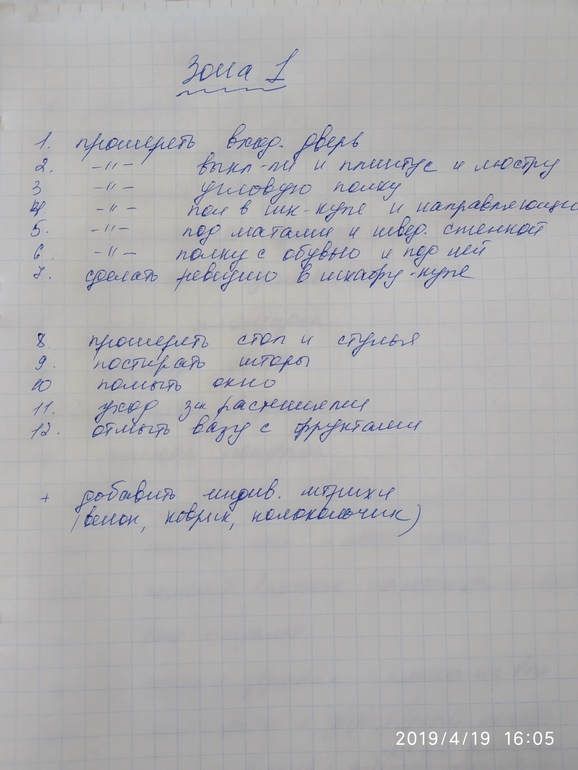 Зона 1
1. протереть вход. дверь
2. -"- выкл-ли и плинтус и люстру
3 -"- угловую полку
4. -"- пол в шк-купе и направляющие
5. -"- под матами и швед. стенкой
6 -"- полку с обувью и под ней
7. сделать ревизию в шкафу-купе
8 протереть стол и стулья
9. постирать шторы
10 помыть окно
11. уход за растениями
12. отмыть вазу с фруктами
+ добавить индив. штрихи
(венок, коврик, колокольчик)
2019/4/19 16:05